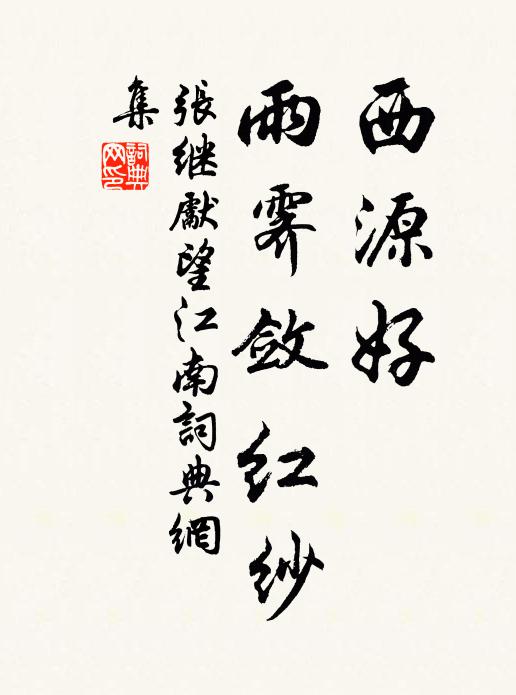 西源好
雨霽斂紅紗
張继獻望江南詞典網
集
詞典
网印